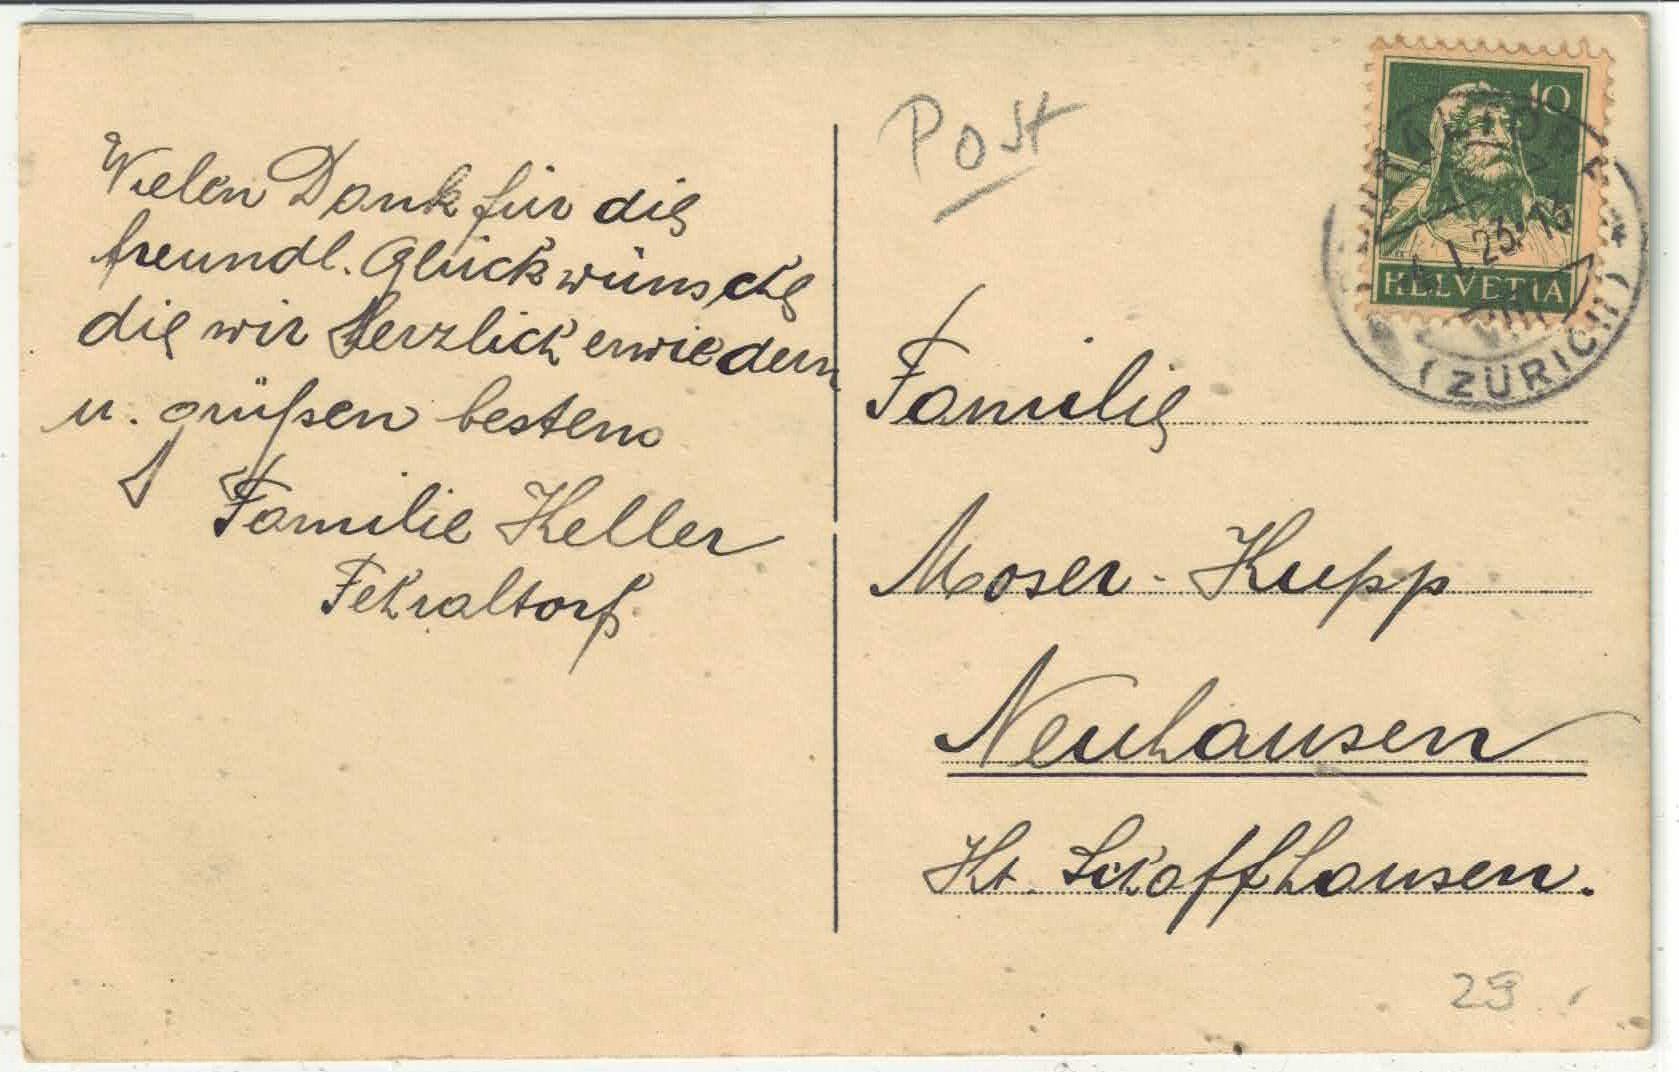 Vielen Dank für die
freundl. Glückwünsche
die wir Herzlich erwiedern
u. grüßen bestens
Familie Keller
Fehraltorf.
Post
10
HELVETIA
(ZÜRICH)
Familie
Moser-Kupp
Neuhausen
Kt. Schaffhausen.
29